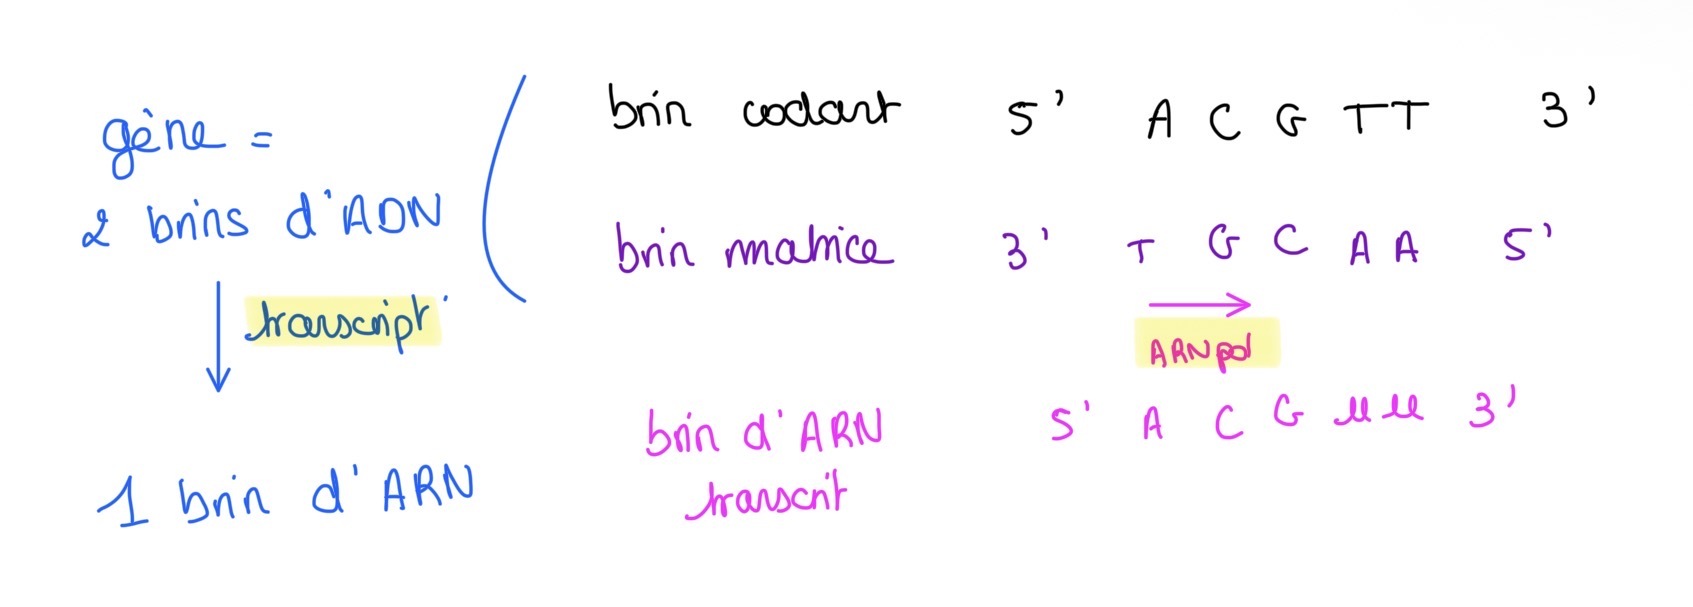 gène =
2 brins d'ADN
transcript°
1 brin d'ARN
brin codant 5' A C G T T 3'
brin matrice 3' T G C A A 5'
ARN pol
brin d'ARN 5' A C G U U 3'
transcrit